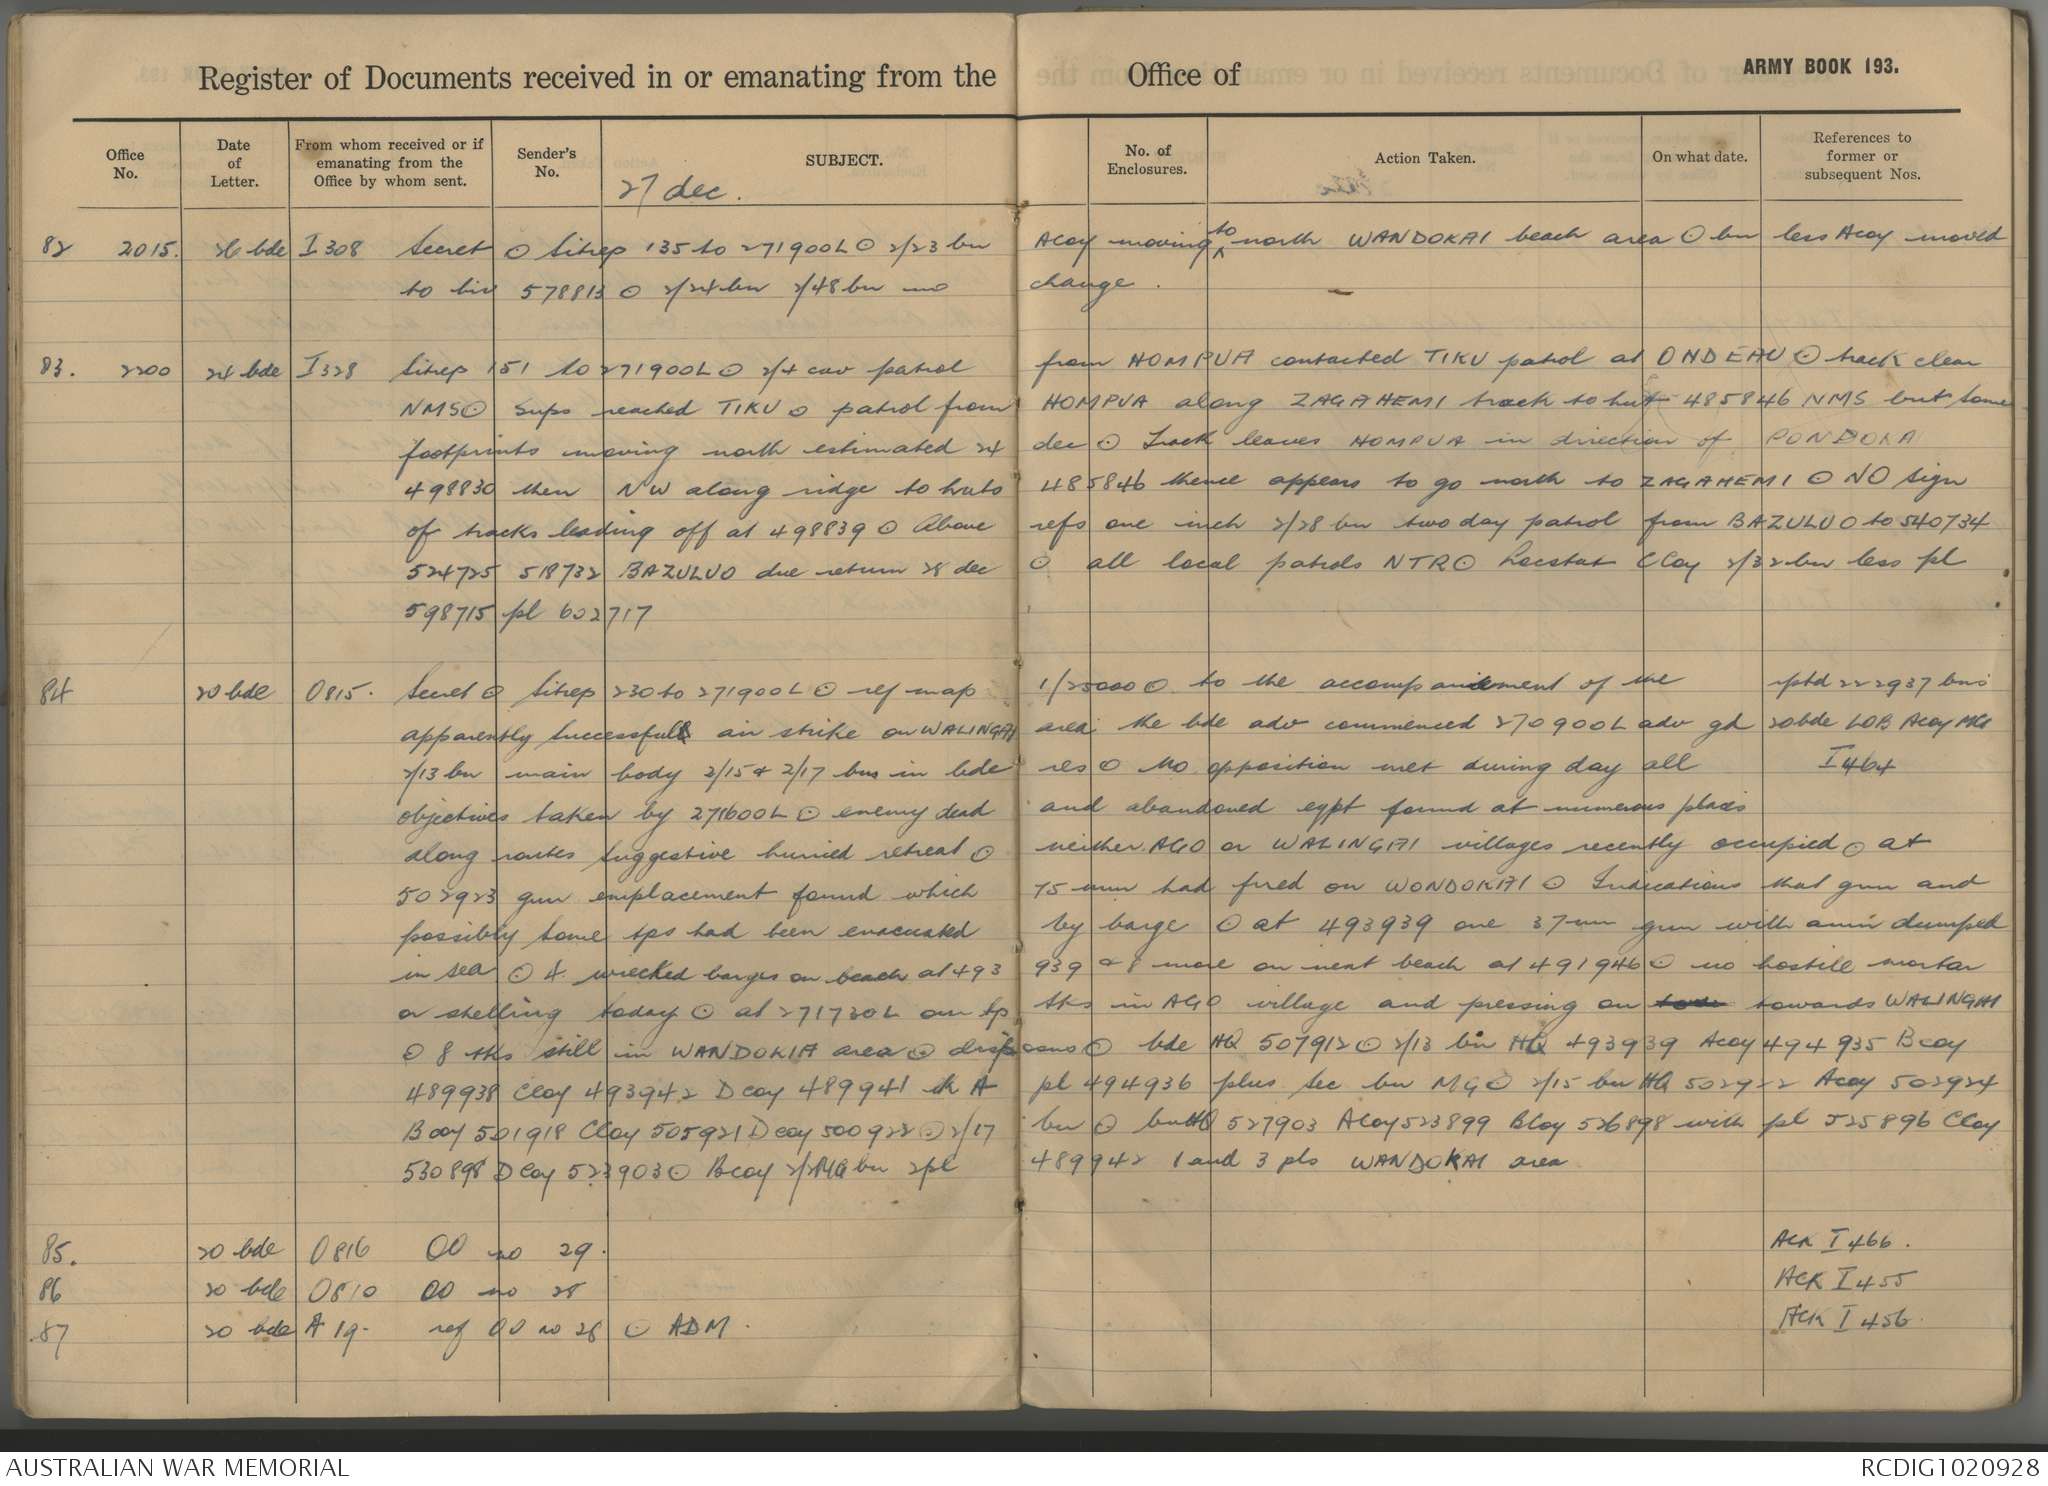 Register of Documents received in or emanating from the Office of ARMY BOOK 193.
Office No. Date of Letter. From whom received or if emanating from the Office by whom sent. Sender's No. SUBJECT. No. of Enclosures. Action Taken. On what date. References to former or subsequent Nos.
27 dec.
82 2015. 26 bde I 308 Secret ⊙ Sitrep 135 to 271900L ⊙ 2/23 bn Acoy moving to north WANDOKAI beach area ⊙ bn less Acoy moved
to biv 578813 ⊙ 2/24 bn 2/48 bn no change.
83. 2200 24 bde I328 Sitrep 151 to 271900L ⊙ 2/4 cav patrol from HOMPUA contacted TIKU patrol at ONDEAU ⊙ track clear
NMS ⊙ Sups reached TIKU ⊙ patrol from HOMPUA along ZAGAHEMI track to hut 485846 NMS but some
footprints moving north estimated 24 dec ⊙ Track leaves HOMPUA in direction of PONDOKA
498830 then NW along ridge to huts 485846 thence appears to go north to ZAGAHEMI ⊙ NO sign
of tracks leading off at 498839 ⊙ Above refs one inch 2/28 bn two day patrol from BAZULUO to 540734
524725 518732 BAZULUO due return 28 dec ⊙ all local patrols NTR ⊙ Locstat CCoy 2/32 bn less pl
598715 pl 602717
84 20 bde O815. Secret ⊙ Sitrep 230 to 271900L ⊙ ref map 1/25000 ⊙ to the accompaniement of the rptd 222937 bns
apparently successful air strike on WALINGAI area the bde adv commenced 270900L adv gd 20bde LOB Acoy MG
2/13 bn main body 2/15 & 2/17 bns in bde res ⊙ No opposition met during day all I 464
objectives taken by 271600L ⊙ enemy dead and abandoned eqpt found at numerous places
along routes suggestive hurried retreat ⊙ neither AGO or WALINGAI villages recently occupied ⊙ at
502923 gun emplacement found which 75 mm had fired on WONDOKAI ⊙ Indications that gun and
possibly some tps had been evacuated by barge ⊙ at 493939 one 37 mm gun with amn dumped
in sea ⊙ 4 wrecked barges on beach at 493 939 & 8 more on next beach at 491946 ⊙ no hostile mortar
or shelling today ⊙ at 271730L our tp tks in AGO village and pressing on towards WALINGAI
⊙ 8 tks still in WANDOKIA area ⊙ dispons ⊙ bde HQ 507912 ⊙ 2/13 bn HQ 493939 Acoy 494935 Bcoy
489938 CCoy 493942 Dcoy 489941 tk A pl 494936 plus sec bn MG ⊙ 2/15 bn HQ 502922 Acoy 502924
Bcoy 501918 CCoy 505921 Dcoy 500922 ⊙ 2/17 bn ⊙ bn HQ 527903 ACoy 523899 BCoy 526898 with pl 525896 CCoy
530898 DCoy 523903 ⊙ Bcoy bn 2pl 489942 1 and 3 pls WANDOKAI area
85. 20 bde O816 OO no 29. Ack I 466.
86 20 bde O810 OO no 28 Ack I 455
87 20 bde A 19. ref OO no 28 ⊙ ADM. Ack I 456.
AUSTRALIAN WAR MEMORIAL RCDIG1020928